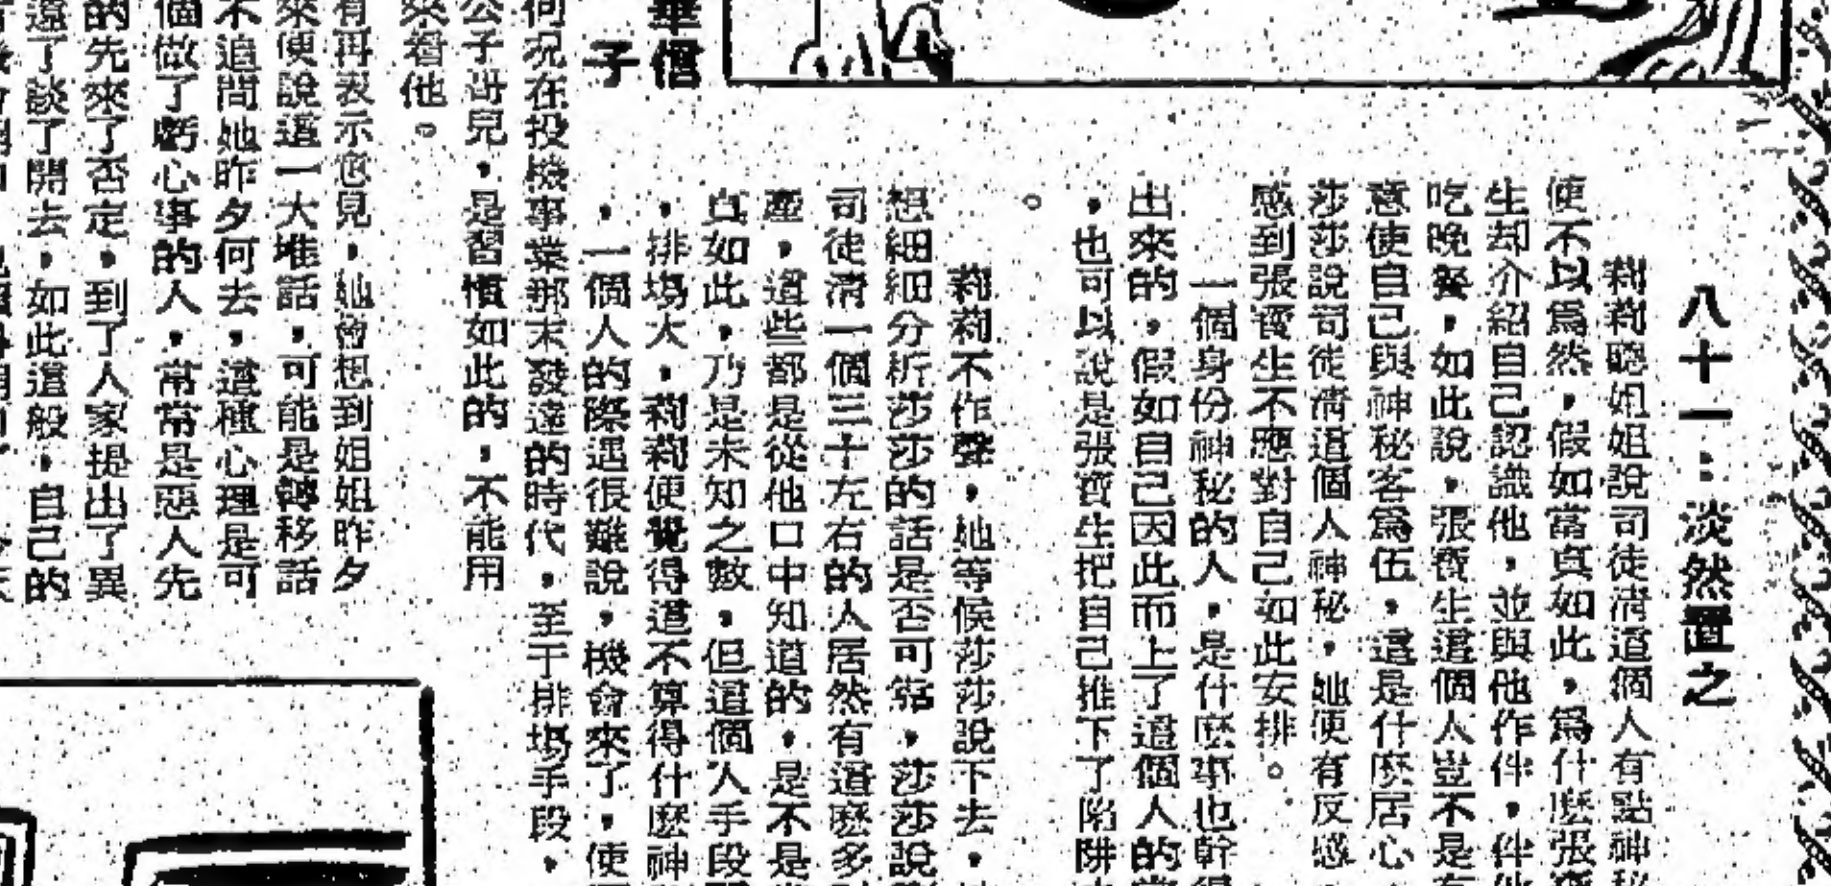 八十一：淡然置之
莉莉聽姐姐說司徒清這個人有點神秘
便不以爲然，假如當真如此，爲什麽張寶
生却介紹自己認識他，並與他作伴，伴他
吃晚餐，如此說，張寶生這個人豈不是有
意使自己與神秘客爲伍，這是什麽居心，
莎莎說司徒清這個人神秘，她便有反感，
感到張寶生不應對自己如此安排。
一個身份神秘的人，是什麽事也幹得
出來的，假如自己因此而上了這個人的當
，也可以說是張寶生把自己推下了陷阱
。
莉莉不作聲，她等候莎莎說下去，
想細細分析莎莎的話是否可靠，莎莎說
司徒清一個三十左右的人居然有這麽多
，這些都是從他口中知道的，是不是
真如此，乃是未知之數，但這個人手段
，排塲大，莉莉便覺得這不算得什麽神
，一個人的際遇很難說，機會來了，使
何况在投機事業那末發達的時代，至于排塲手段，
公子哥兒，是習慣如此的，不能用
來看他。
華信
子
有再表示意見，她曾想到姐姐昨夕
來便說這一大堆話，可能是轉移話
不追問她昨夕何去，這種心理是可
個做了虧心事的人，常常是惡人先
的先來了否定，到了人家提出了異
了談了開去，如此這般，自己的